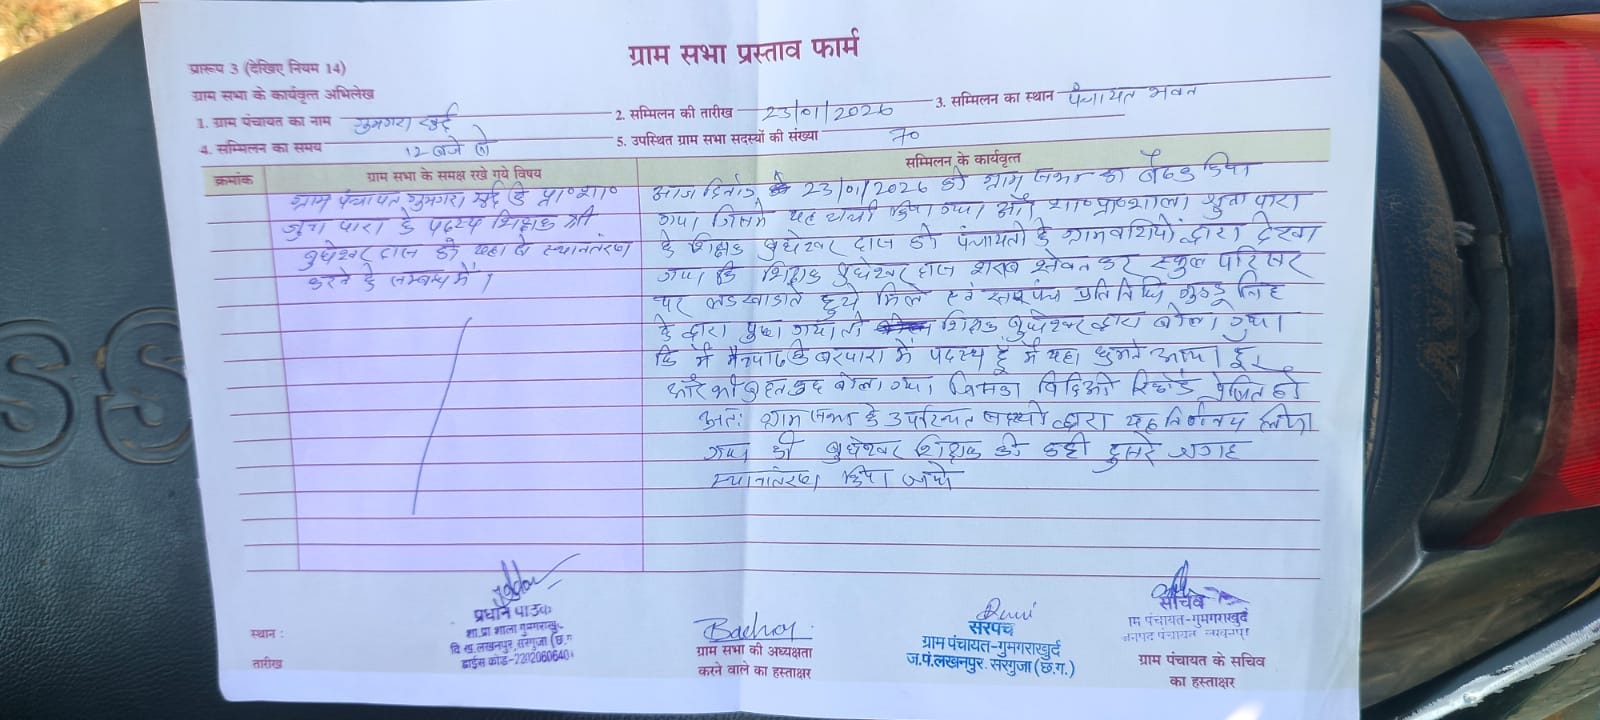 ग्राम सभा प्रस्ताव फार्म
प्रारूप 3 (देखिए नियम 14)
ग्राम सभा के कार्यवृत्त अभिलेख
1. ग्राम पंचायत का नाम गुमगरा खुर्द 2. सम्मिलन की तारीख 23/01/2026 3. सम्मिलन का स्थान पंचायत भवन
4. सम्मिलन का समय 12 बजे से 5. उपस्थित ग्राम सभा सदस्यों की संख्या 70
क्रमांक ग्राम सभा के समक्ष रखे गये विषय सम्मिलन के कार्यवृत्त
ग्राम पंचायत गुमगरा खुर्द के प्रा०शा०
पारा के पदस्थ शिक्षक श्री
बुधेश्वर दास को यहा से स्थानतंरण
करने के सम्बध में।
आज दिनांक 23/01/2026 को ग्राम सभा का बैठक किया
गया जिसमे यह चर्चा किया गया की शा०प्रा०शाला पारा
के शिक्षक बुधेश्वर दास को पंचायतो के ग्रामवाशियों द्वारा देखा
गया कि शिक्षक बुधेश्वर दास शराब सेवन कर स्कुल परिसर
पर लडखाडाते हुये मिले एवं सरपंच प्रतिनिधि गुड्डू सिंह
के द्वारा पुछा गया तो शिक्षक बुधेश्वर द्वारा बोला गया
कि मैं मैनपाट के बरपारा में पदस्थ हूँ मैं यहा घुमने आया हूँ
और भी बहुत कुछ बोला गया जिसका विडिओ रिकॉर्ड
अतः ग्राम सभा के उपस्थित सदस्यो द्वारा यह निर्णनय लिया
गया की बुधेश्वर शिक्षक को कही दुसरे जगह
स्थानांतरण किया जाये
प्रधान पाठक
शा.प्रा.शाला गुमगराखुर्द
वि.ख.लखनपुर, सरगुजा (छ.ग.
डाईस कोड-2202060640
स्थान :
तारीख
ग्राम सभा की अध्यक्षता
करने वाले का हस्ताक्षर
सरपंच
ग्राम पंचायत-गुमगराखुर्द
ज.पं.लखनपुर. सरगुजा (छ.ग.)
सचिव
ाम पंचायत-गुमगराखुर्द
जनपद पंचायत लखनपुर
ग्राम पंचायत के सचिव
का हस्ताक्षर